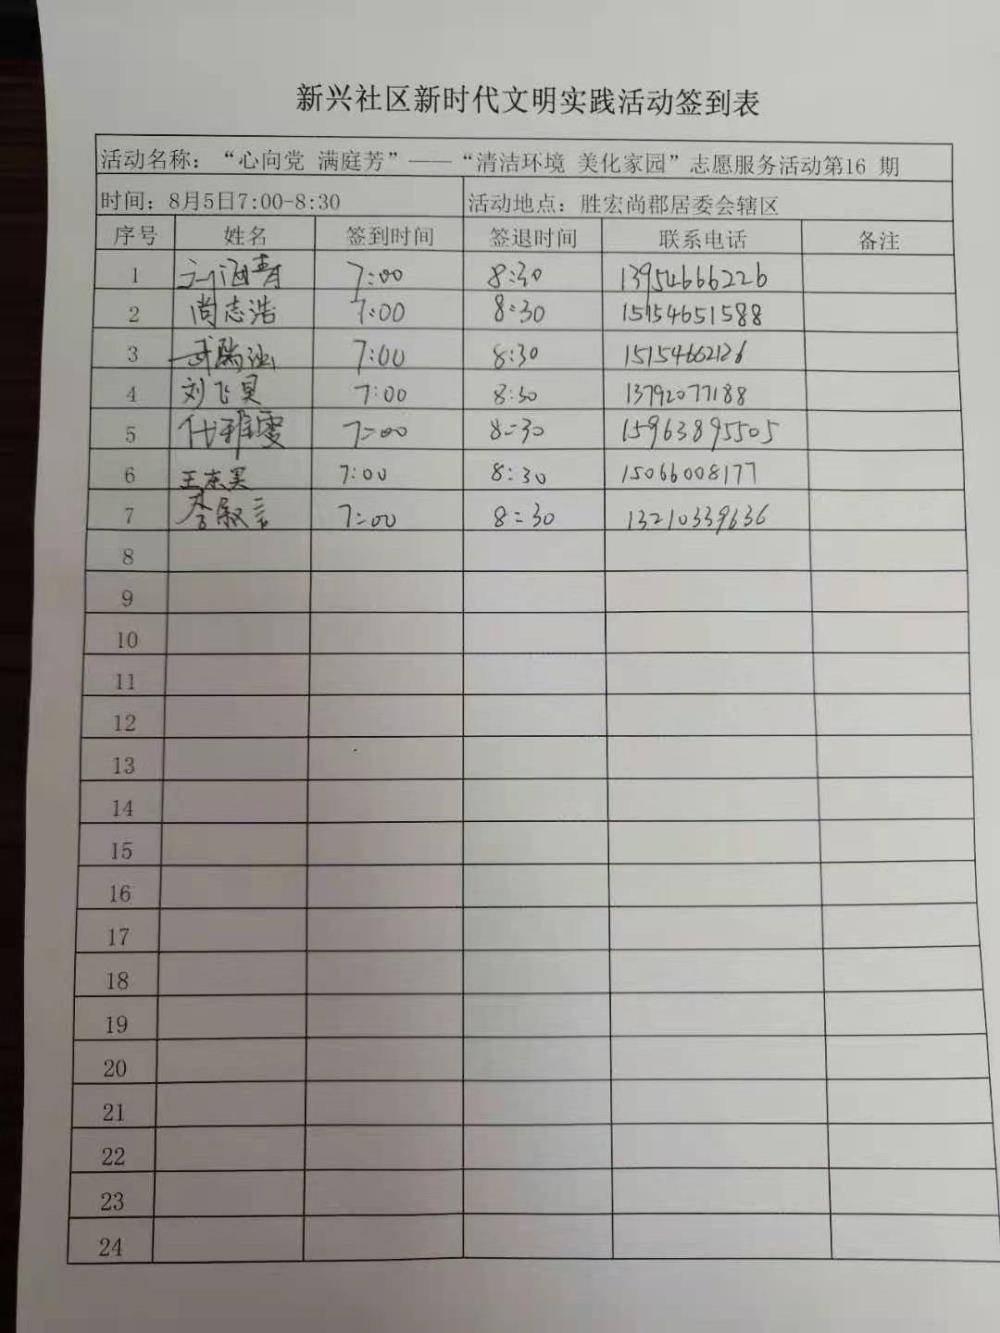 新兴社区新时代文明实践活动签到表
活动名称：“心向党 满庭芳”——“清洁环境 美化家园”志愿服务活动第16 期
时间：8月5日7:00-8:30 活动地点：胜宏尚郡居委会辖区
序号 姓名 签到时间 签退时间 联系电话 备注
1 刘海青 7:00 8:30 13954666226
2 尚志浩 7:00 8:30 15154651588
3 武 7:00 8:30 15154662126
4 刘飞 7:00 8:30 13792077188
5 代雅雯 7:00 8:30 15963895505
6 王东昊 7:00 8:30 15066008177
7 李 7:00 8:30 13210339636
8
9
10
11
12
13
14
15
16
17
18
19
20
21
22
23
24